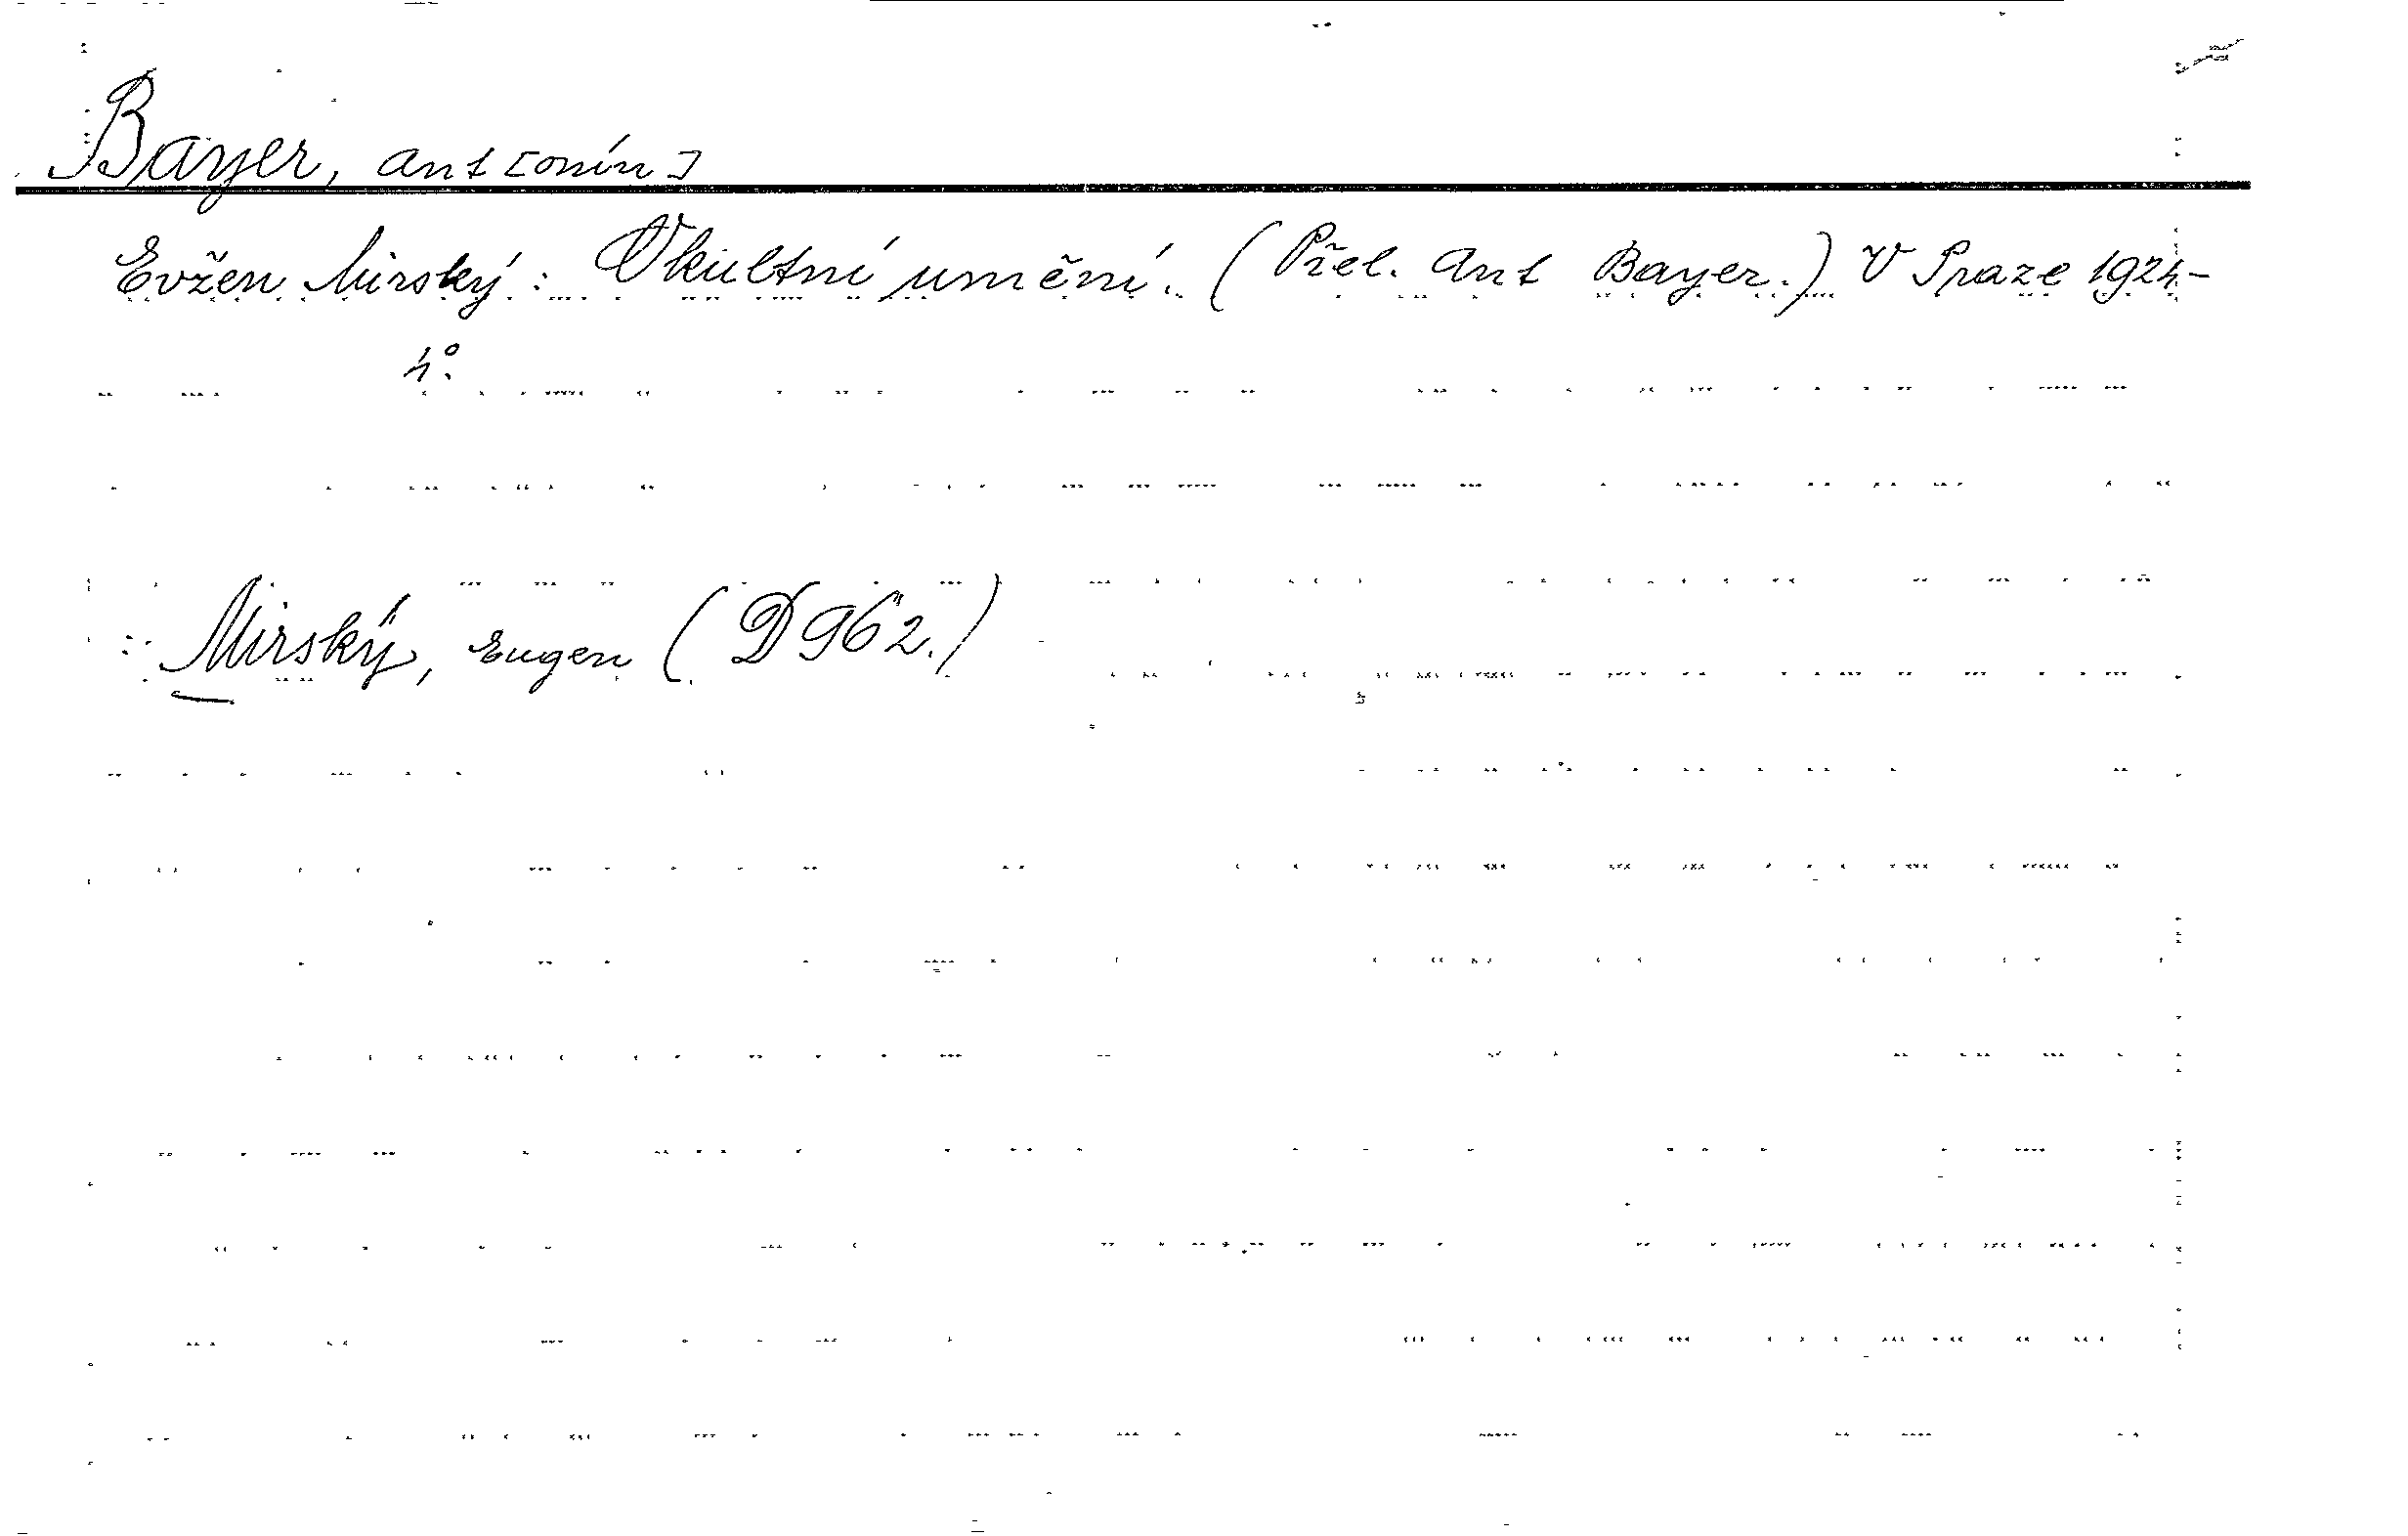 Bayer, Ant[onín]
Evžen Mirský: Okultní umění. (Přel. Ant Bayer.) V Praze 1924-
4°.
: Mirský, Eugen (D 962.)